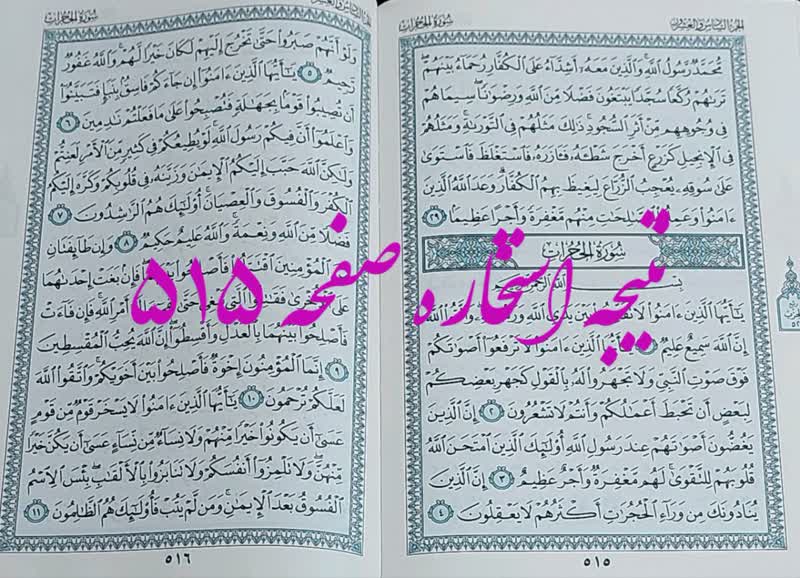 الجزء السادس والعشرون
سورة الحجرات
مُّحَمَّدٌ رَّسُولُ اللَّهِ وَالَّذِينَ مَعَهُ أَشِدَّاءُ عَلَى الْكُفَّارِ رُحَمَاءُ بَيْنَهُمْ
تَرَاهُمْ رُكَّعًا سُجَّدًا يَبْتَغُونَ فَضْلًا مِّنَ اللَّهِ وَرِضْوَانًا سِيمَاهُمْ
فِي وُجُوهِهِم مِّنْ أَثَرِ السُّجُودِ ذَٰلِكَ مَثَلُهُمْ فِي التَّوْرَاةِ وَمَثَلُهُمْ
فِي الْإِنجِيلِ كَزَرْعٍ أَخْرَجَ شَطْأَهُ فَآزَرَهُ فَاسْتَغْلَظَ فَاسْتَوَىٰ
عَلَىٰ سُوقِهِ يُعْجِبُ الزُّرَّاعَ لِيَغِيظَ بِهِمُ الْكُفَّارَ وَعَدَ اللَّهُ الَّذِينَ
ءَامَنُوا وَعَمِلُوا الصَّالِحَاتِ مِنْهُم مَّغْفِرَةً وَأَجْرًا عَظِيمًا ٢٩
سورة الحجرات
بِسْمِ اللَّهِ الرَّحْمَٰنِ الرَّحِيمِ
يَا أَيُّهَا الَّذِينَ ءَامَنُوا لَا تُقَدِّمُوا بَيْنَ يَدَيِ اللَّهِ وَرَسُولِهِ وَاتَّقُوا اللَّهَ
إِنَّ اللَّهَ سَمِيعٌ عَلِيمٌ ١ يَا أَيُّهَا الَّذِينَ ءَامَنُوا لَا تَرْفَعُوا أَصْوَاتَكُمْ
فَوْقَ صَوْتِ النَّبِيِّ وَلَا تَجْهَرُوا لَهُ بِالْقَوْلِ كَجَهْرِ بَعْضِكُمْ
لِبَعْضٍ أَن تَحْبَطَ أَعْمَالُكُمْ وَأَنتُمْ لَا تَشْعُرُونَ ٢ إِنَّ الَّذِينَ
يَغُضُّونَ أَصْوَاتَهُمْ عِندَ رَسُولِ اللَّهِ أُولَٰئِكَ الَّذِينَ امْتَحَنَ اللَّهُ
قُلُوبَهُمْ لِلتَّقْوَىٰ لَهُم مَّغْفِرَةٌ وَأَجْرٌ عَظِيمٌ ٣ إِنَّ الَّذِينَ
يُنَادُونَكَ مِن وَرَاءِ الْحُجُرَاتِ أَكْثَرُهُمْ لَا يَعْقِلُونَ ٤
٥١٥
الجزء السادس والعشرون
سورة الحجرات
وَلَوْ أَنَّهُمْ صَبَرُوا حَتَّىٰ تَخْرُجَ إِلَيْهِمْ لَكَانَ خَيْرًا لَّهُمْ وَاللَّهُ غَفُورٌ
رَّحِيمٌ ٥ يَا أَيُّهَا الَّذِينَ ءَامَنُوا إِن جَاءَكُمْ فَاسِقٌ بِنَبَإٍ فَتَبَيَّنُوا
أَن تُصِيبُوا قَوْمًا بِجَهَالَةٍ فَتُصْبِحُوا عَلَىٰ مَا فَعَلْتُمْ نَادِمِينَ ٦
وَاعْلَمُوا أَنَّ فِيكُمْ رَسُولَ اللَّهِ لَوْ يُطِيعُكُمْ فِي كَثِيرٍ مِّنَ الْأَمْرِ لَعَنِتُّمْ
وَلَٰكِنَّ اللَّهَ حَبَّبَ إِلَيْكُمُ الْإِيمَانَ وَزَيَّنَهُ فِي قُلُوبِكُمْ وَكَرَّهَ إِلَيْكُمُ
الْكُفْرَ وَالْفُسُوقَ وَالْعِصْيَانَ أُولَٰئِكَ هُمُ الرَّاشِدُونَ ٧
فَضْلًا مِّنَ اللَّهِ وَنِعْمَةً وَاللَّهُ عَلِيمٌ حَكِيمٌ ٨ وَإِن طَائِفَتَانِ
مِنَ الْمُؤْمِنِينَ اقْتَتَلُوا فَأَصْلِحُوا بَيْنَهُمَا فَإِن بَغَتْ إِحْدَاهُمَا
عَلَى الْأُخْرَىٰ فَقَاتِلُوا الَّتِي تَبْغِي حَتَّىٰ تَفِيءَ إِلَىٰ أَمْرِ اللَّهِ فَإِن فَاءَتْ
فَأَصْلِحُوا بَيْنَهُمَا بِالْعَدْلِ وَأَقْسِطُوا إِنَّ اللَّهَ يُحِبُّ الْمُقْسِطِينَ
٩ إِنَّمَا الْمُؤْمِنُونَ إِخْوَةٌ فَأَصْلِحُوا بَيْنَ أَخَوَيْكُمْ وَاتَّقُوا اللَّهَ
لَعَلَّكُمْ تُرْحَمُونَ ١٠ يَا أَيُّهَا الَّذِينَ ءَامَنُوا لَا يَسْخَرْ قَوْمٌ مِّن قَوْمٍ
عَسَىٰ أَن يَكُونُوا خَيْرًا مِّنْهُمْ وَلَا نِسَاءٌ مِّن نِّسَاءٍ عَسَىٰ أَن يَكُنَّ خَيْرًا
مِّنْهُنَّ وَلَا تَلْمِزُوا أَنفُسَكُمْ وَلَا تَنَابَزُوا بِالْأَلْقَابِ بِئْسَ الِاسْمُ
الْفُسُوقُ بَعْدَ الْإِيمَانِ وَمَن لَّمْ يَتُبْ فَأُولَٰئِكَ هُمُ الظَّالِمُونَ ١١
٥١٦
نتیجه استخاره صفحه ۵۱۵